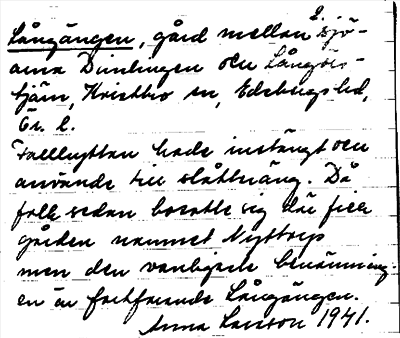 Långängen, gård mellan 2 sjö-
arna Dimlingen och Långös-
tjärn, Kristbro sn, Edsbergs hd,
Ör. l.
Falllhyttan hade instängt och
använde till slåttnäng. Då
folk sedan bosatte sig där fick
gården namnet Nyttorp
men den vanligaste benämning-
en är fortfarande Långängen.
Anna Larsson 1941.